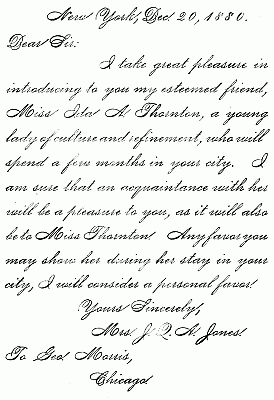 New York, Dec. 20, 1880.
Dear Sir:
I take great pleasure in
introducing to you my esteemed friend,
Miss Ida A. Thornton, a young
lady of culture and refinement, who will
spend a few months in your city. I
am sure that an acquaintance with her
will be a pleasure to you, as it will also
be to Miss Thornton. Any favor you
may show her during her stay in your
city, I will consider a personal favor.
Yours Sincerely,
Mrs. J. Q. A. Jones.
To Geo. Morris,
Chicago.